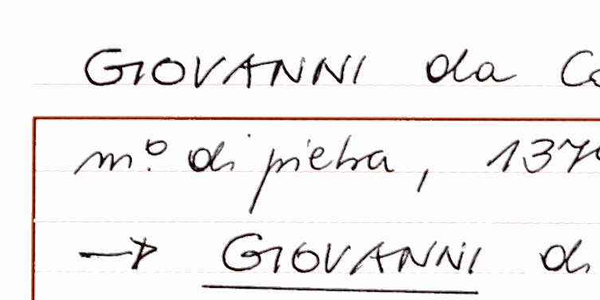 GIOVANNI da
m.º di pietra,
→ GIOVANNI di